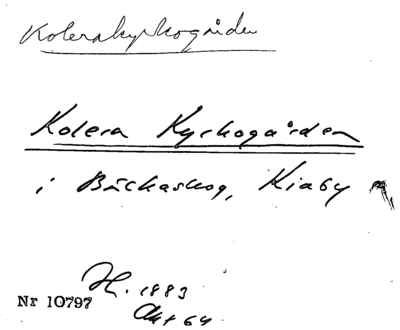 Kolerakyrkogården
Kolera Kyrkogården
i Bäckaskog, Kiaby
H. 1883
Nr 10797
Akt 64